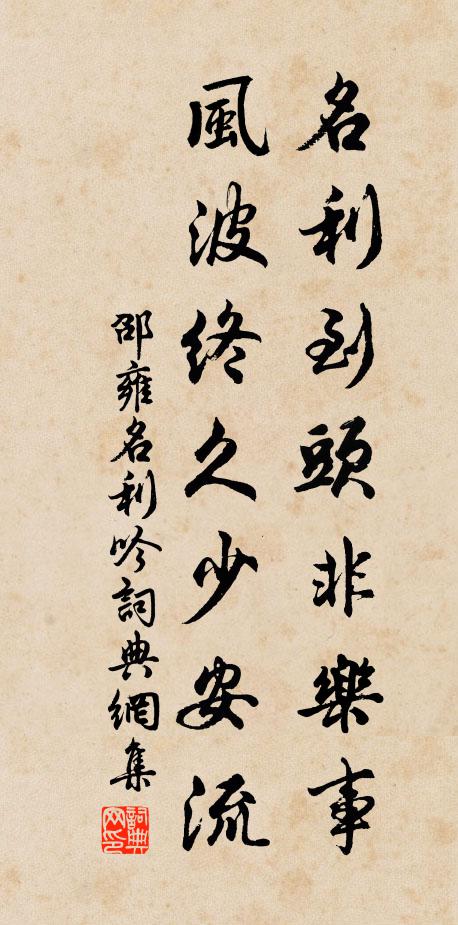 名利到頭非樂事
風波終久少安流
邵雍名利吟詞典網集
詞典
网印